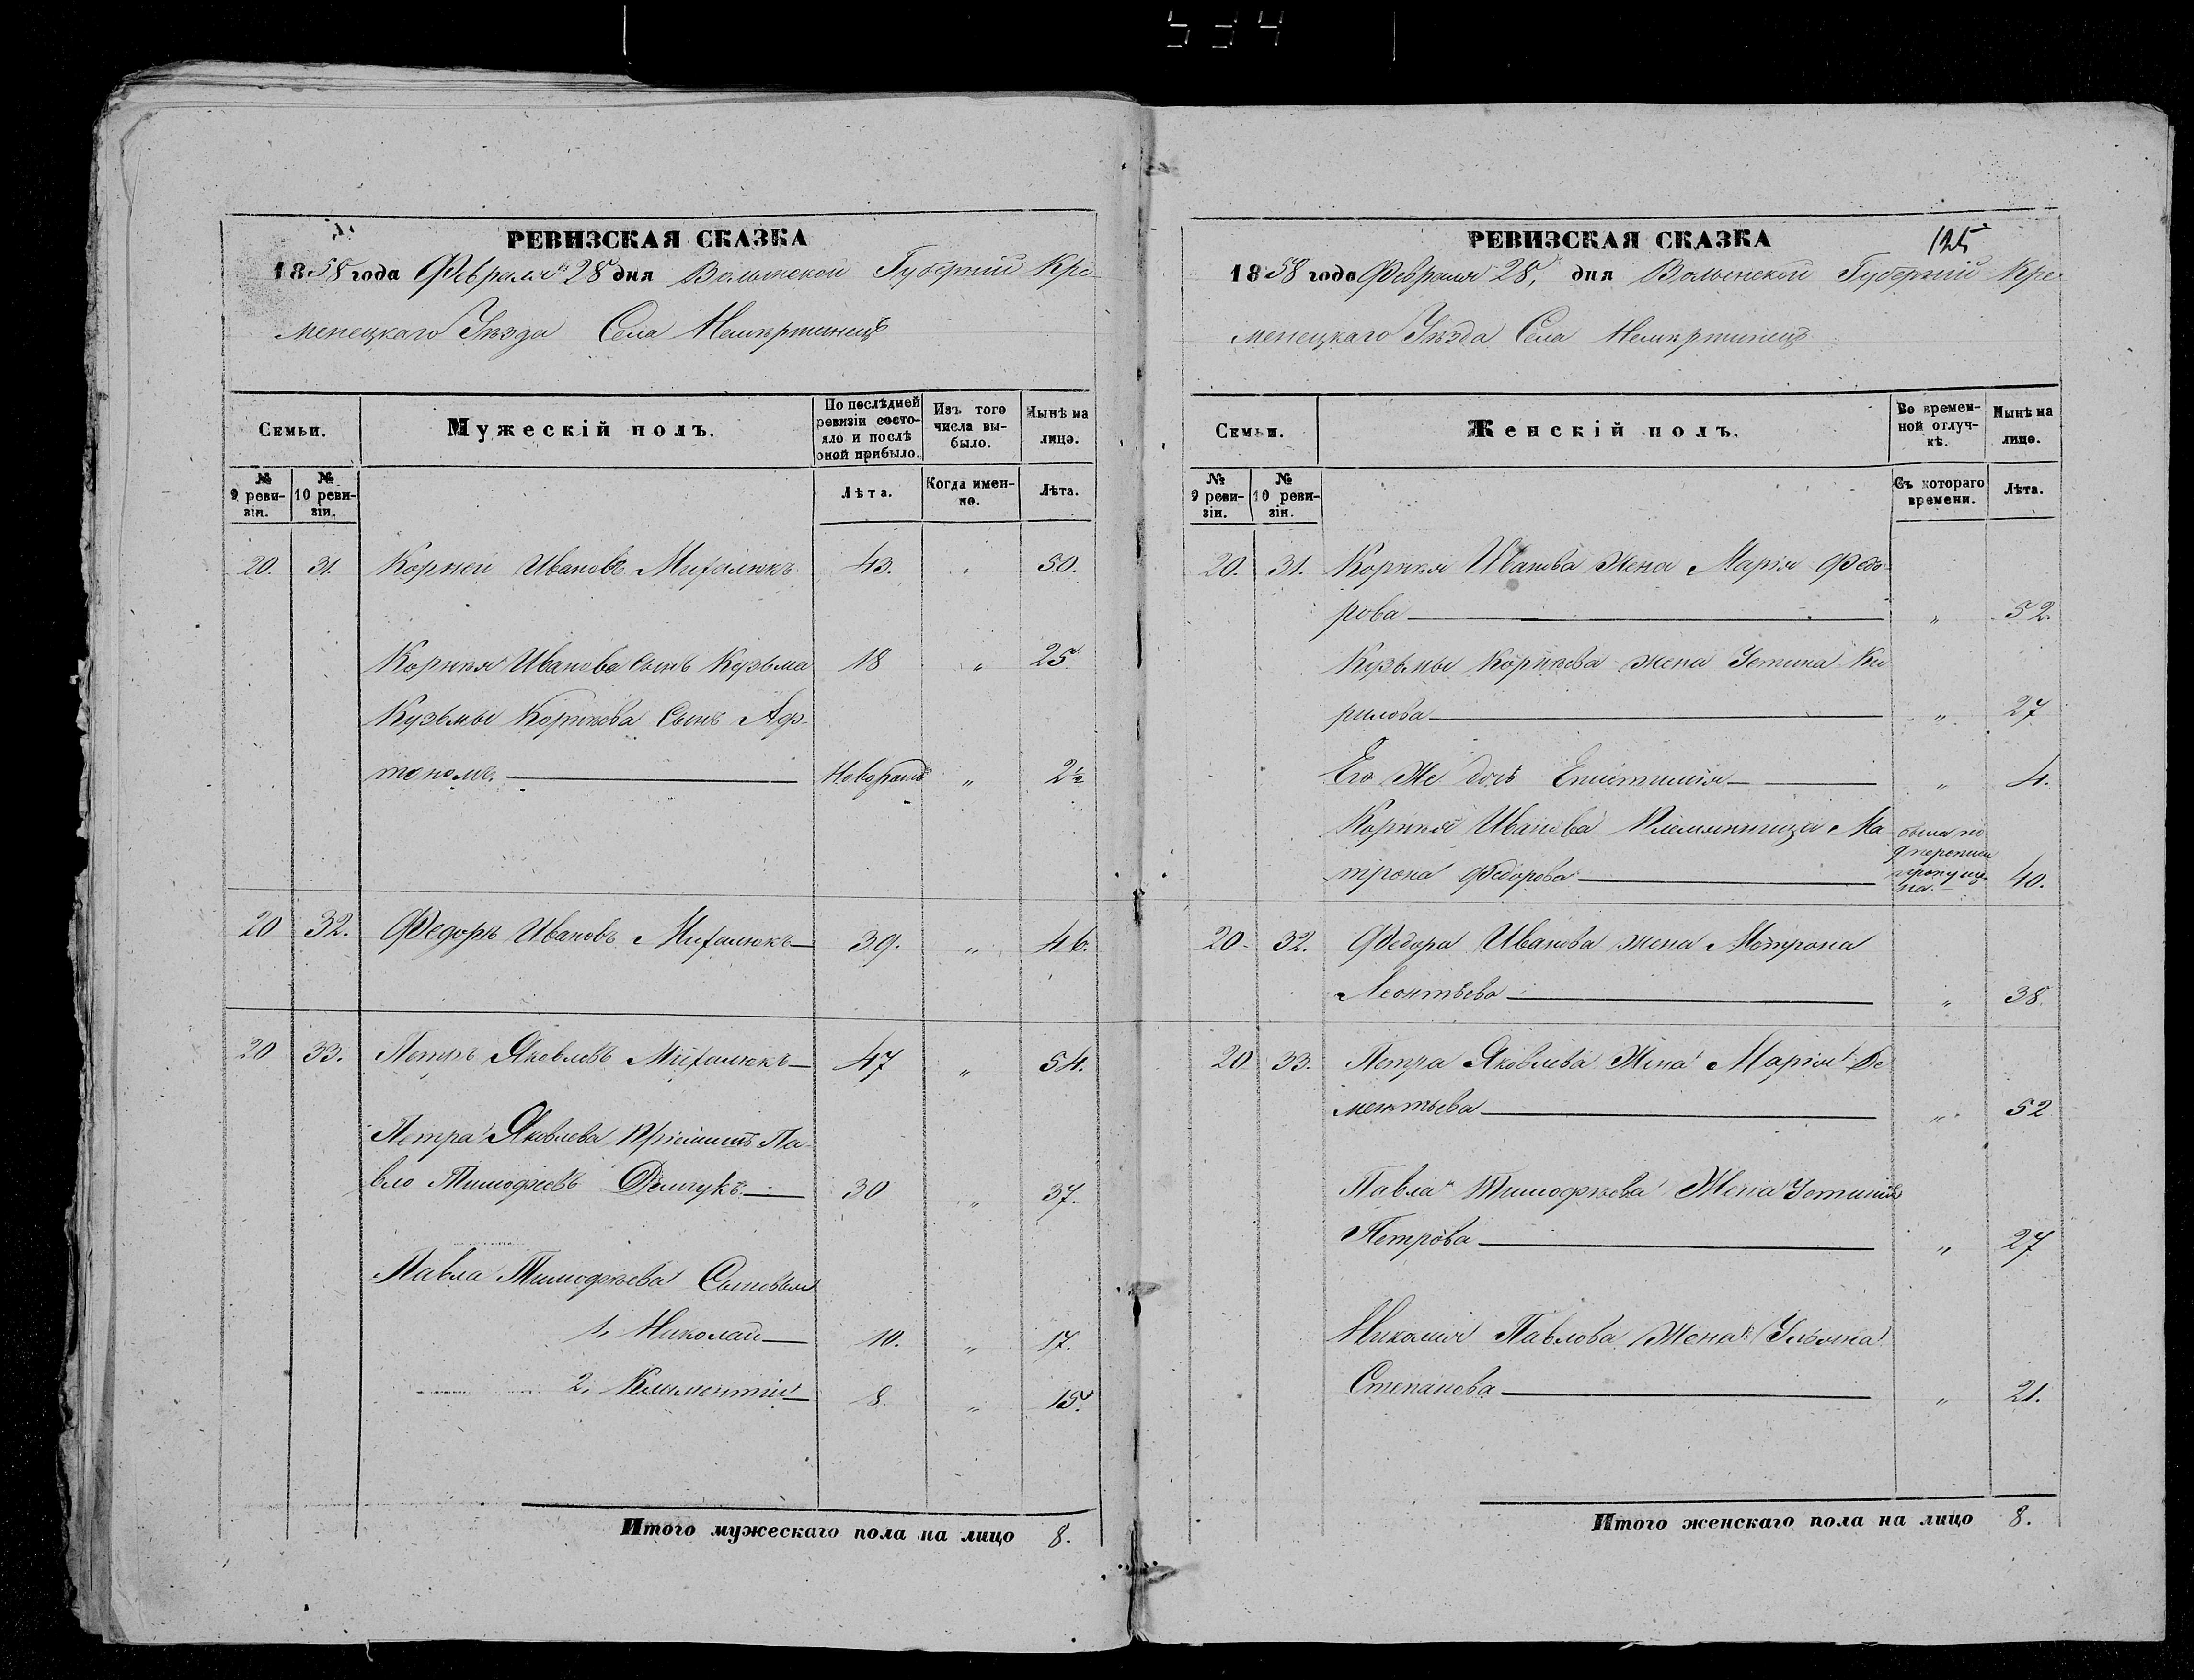 534
РЕВИЗСКАЯ СКАЗКА
1858 года Февраля 28 дня Волынской Губерніи Кре-
менецкаго Уѣзда Села
Семьи.
Мужескій полъ.
По послѣдней ревизіи состояло и послѣ оной прибыло.
Изъ того числа вы-было.
Нынѣ на лицо.
№ 9 реви-зіи.
№ 10 реви-зіи.
Лѣта.
Когда имен-но.
Лѣта.
20. 31. Корней Ивановъ Михалюкъ 43. „ 50.
Корнѣя Иванова сынъ Кузьма 18 „ 25
Кузьмы Корнѣева Сынъ Ар-
тономъ. „ 2½
20 32. Федоръ Ивановъ Михалюкъ 39. „ 46.
20 33. Петръ Яковлевъ Михалюкъ 47 „ 54.
Петра Яковлева Пріемышъ Па-
вло Тимофѣевъ 30 „ 37.
Павла Тимофѣева Сыновья
1, Николай 10. „ 17.
2, Климентій 8. „ 15.
Итого мужескаго пола на лицо 8.
РЕВИЗСКАЯ СКАЗКА 125
1858 года Февраля 28, дня Волынской Губерніи Кре-
менецкаго Уѣзда Села
Семьи.
Женскій полъ.
Во времен-ной отлуч-кѣ.
Нынѣ на лицо.
№ 9 реви-зіи.
№ 10 реви-зіи.
Съ котораго времени.
Лѣта.
20. 31. Корнѣя Иванова Жена Марія Федо-
рова „ 52.
Кузьмы Корнѣева жена Устина Ки
рилова „ 27
Его Же дочь Епистимія „ 4.
Корнѣя Иванова Племянница Ма
трона Федорова была по 9 переписи пропуще-на 40.
20. 32. Федора Иванова жена Мотрона
Леонтьева „ 38.
20 33. Петра Яковлева Жена Марія Де
ментьева „ 52
Павла Тимофѣева Жена Устинія
Петрова „ 27
Николая Павлова Жена Ульяна
Степанова „ 21.
Итого женскаго пола на лицо 8.